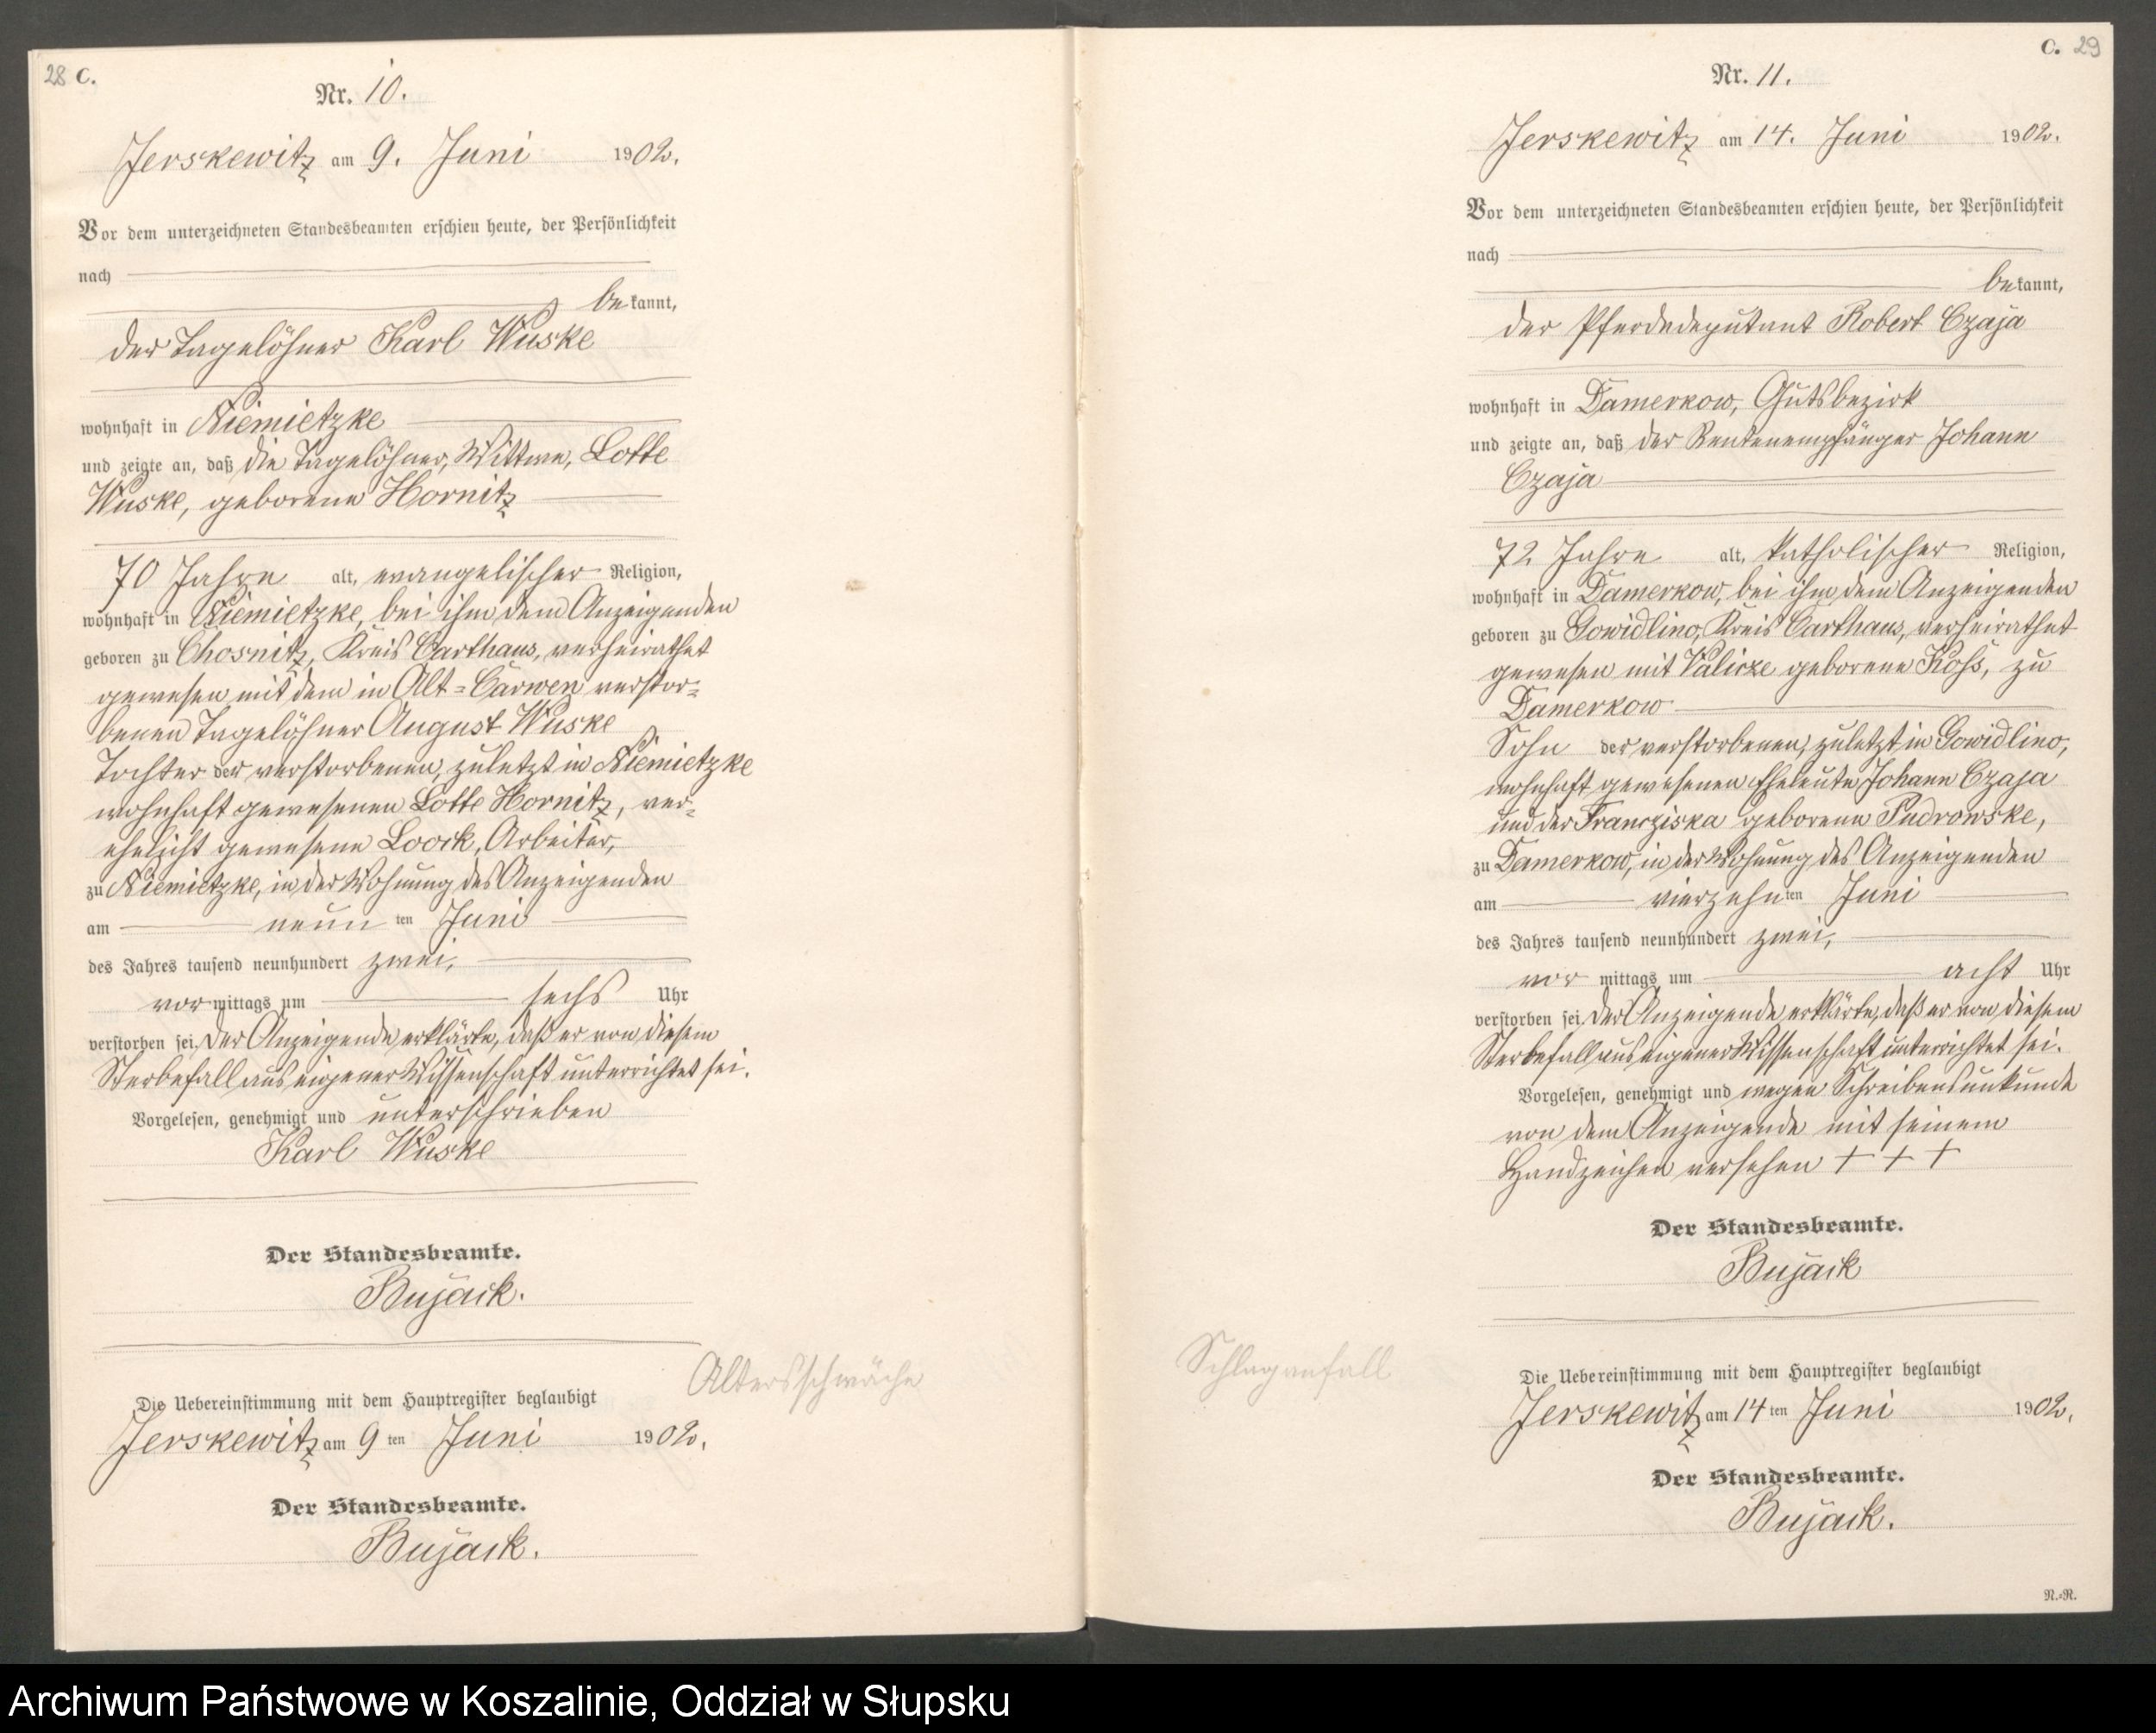 28 C.
Nr. 10.
Jerskewitz am 9. Juni 1902.
Vor dem unterzeichneten Standesbeamten erschien heute, der Persönlichkeit
nach
bekannt,
der Tagelöhner Karl Wuske
wohnhaft in Niemietzke
und zeigte an, daß die Tagelöhner, Wittwe, Lotte
Wuske, geborene Hornitz
70 Jahre alt, evangelischer Religion,
wohnhaft in Niemietzke, bei ihm dem Anzeigenden
geboren zu Chosnitz, Kreis Carthaus, verheirathet
gewesen mit dem in Alt-Carwen verstor-
benen Tagelöhner August Wuske
Tochter der verstorbenen, zuletzt in Niemietzke
wohnhaft gewesenen Lotte Hornitz, ver-
ehelicht gewesene Loock, Arbeiter,
zu Niemietzke, in der Wohnung des Anzeigenden
am neunten Juni
des Jahres tausend neunhundert zwei,
vormittags um sechs Uhr
verstorben sei, der Anzeigende erklärte, daß er von diesem
Sterbefall aus eigener Wissenschaft unterrichtet sei.
Vorgelesen, genehmigt und unterschrieben
Karl Wuske
Der Standesbeamte.
Bujack.
Altersschwäche
Die Uebereinstimmung mit dem Hauptregister beglaubigt
Jerskewitz am 9ten Juni 1902.
Der Standesbeamte.
Bujack.
C. 29
Nr. 11.
Jerskewitz am 14. Juni 1902.
Vor dem unterzeichneten Standesbeamten erschien heute, der Persönlichkeit
nach
bekannt,
der Pferdedeputant Robert Czaja
wohnhaft in Damerkow, Gutsbezirk
und zeigte an, daß der Rentenempfänger Johann
Czaja
72 Jahre alt, katholischer Religion,
wohnhaft in Damerkow, bei ihm dem Anzeigenden
geboren zu Gowidlino, Kreis Carthaus, verheirathet
gewesen mit Valicze geborene Koss, zu
Damerkow
Sohn der verstorbenen, zuletzt in Gowidlino,
wohnhaft gewesenen Eheleute Johann Czaja
und der Franziska geborene Pudrowske,
zu Damerkow, in der Wohnung des Anzeigenden
am vierzehnten Juni
des Jahres tausend neunhundert zwei,
vormittags um acht Uhr
verstorben sei, der Anzeigende erklärte, daß er von diesem
Sterbefall aus eigener Wissenschaft unterrichtet sei.
Vorgelesen, genehmigt und wegen Schreibensunkunde
von dem Anzeigende mit seinem
Handzeichen versehen + + +
Der Standesbeamte.
Bujack
Schlaganfall
Die Uebereinstimmung mit dem Hauptregister beglaubigt
Jerskewitz am 14ten Juni 1902.
Der Standesbeamte.
Bujack.
N.-R.
Archiwum Państwowe w Koszalinie, Oddział w Słupsku